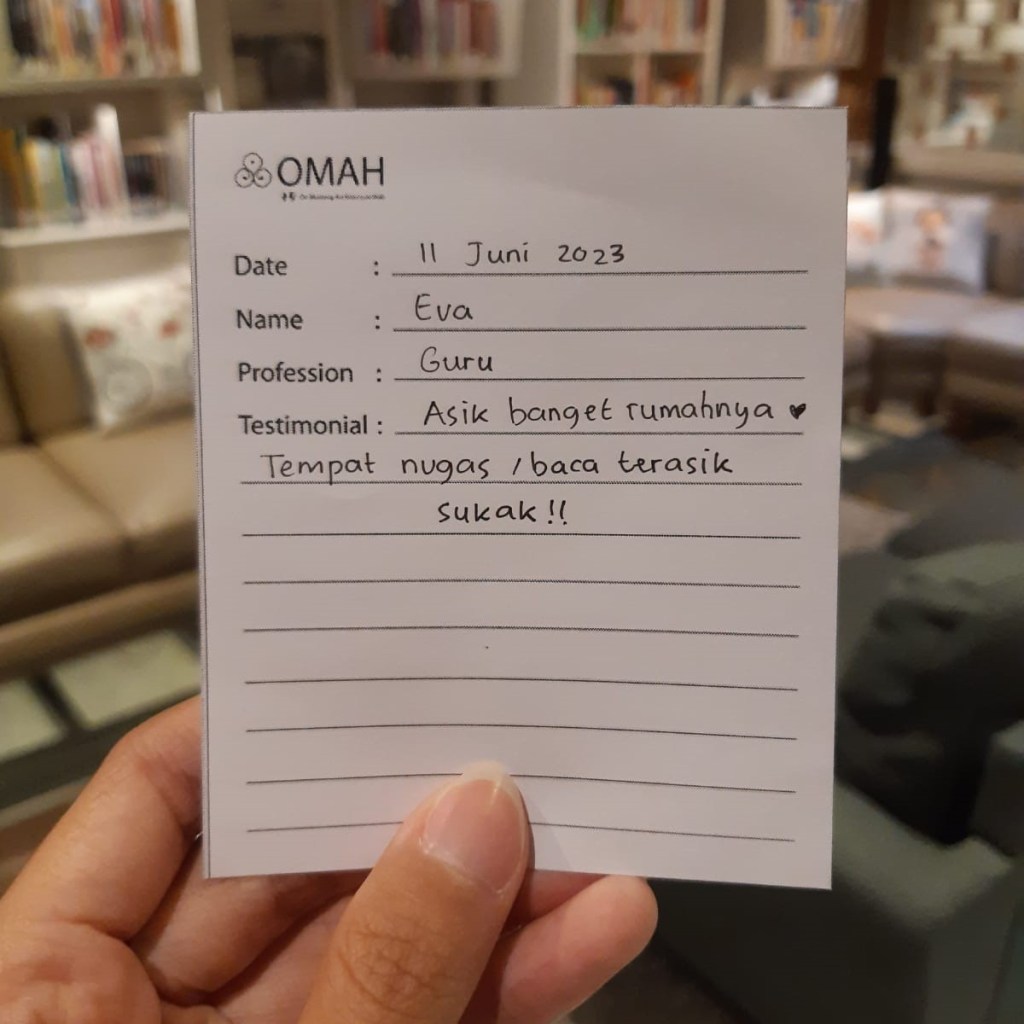 OMAH
Date : 11 Juni 2023
Name : Eva
Profession : Guru
Testimonial : Asik banget rumahnya ♥
Tempat nugas / baca terasik
sukak!!